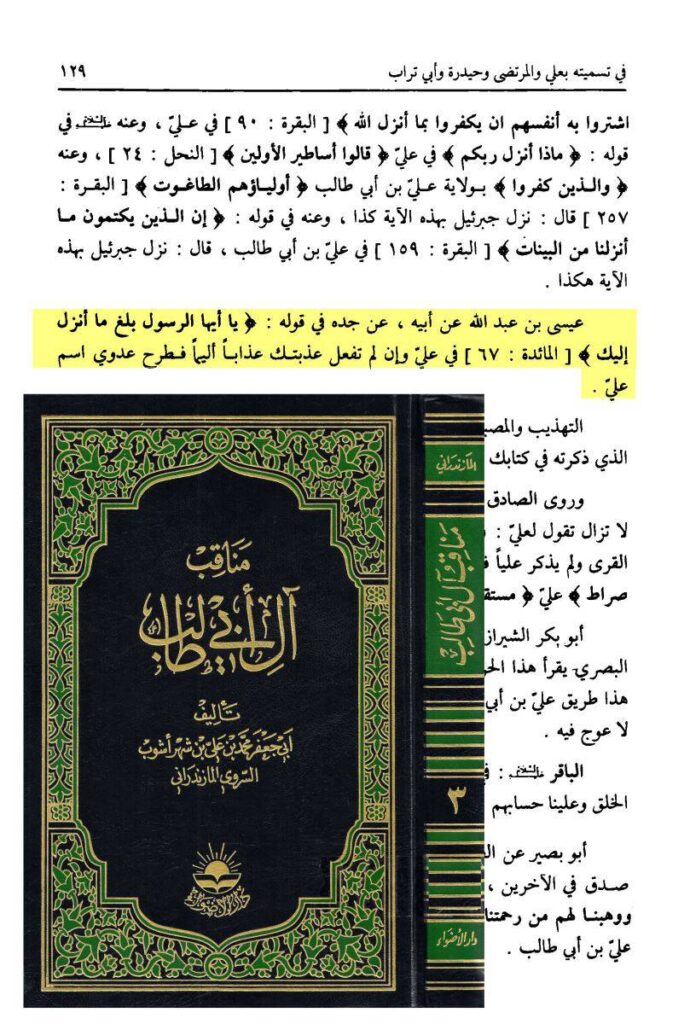 في تسميته بعلي والمرتضى وحيدرة وأبي تراب ١٢٩
اشتروا به أنفسهم ان يكفروا بما أنزل الله ﴾ [ البقرة : ٩٠ ] في عليّ ، وعنه عليه السلام في
قوله : ﴿ ماذا أنزل ربكم ﴾ في عليّ ﴿ قالوا أساطير الأولين ﴾ [ النحل : ٢٤ ] ، وعنه
﴿ والذين كفروا ﴾ بولاية عليّ بن أبي طالب ﴿ أولياؤهم الطاغوت ﴾ [ البقرة :
٢٥٧ ] قال : نزل جبرئيل بهذه الآية كذا ، وعنه في قوله : ﴿ إن الذين يكتمون ما
أنزلنا من البينات ﴾ [ البقرة : ١٥٩ ] في عليّ بن أبي طالب ، قال : نزل جبرئيل بهذه
الآية هكذا .
عيسى بن عبد الله عن أبيه ، عن جده في قوله : ﴿ يا أيها الرسول بلغ ما أنزل
إليك ﴾ [ المائدة : ٦٧ ] في عليّ وإن لم تفعل عذبتك عذاباً أليماً فطرح عدوي اسم
عليّ .
التهذيب
الذي ذكرته في كتابك
وروى الصادق
لا تزال تقول لعليّ :
القرى ولم يذكر علياً
صراط ﴾ عليّ ﴿
أبو بكر
البصري يقرأ هذا
هذا طريق عليّ بن أبي
لا عوج فيه .
الباقر عليه السلام :
الخلق وعلينا حسابهم
أبو بصير عن
صدق في الآخرين ،
ووهبنا لهم من رحمتنا
عليّ بن أبي طالب .
مناقب
آل أبي طالب
تأليف
أبي جعفر محمد بن علي بن شهر آشوب
السروي المازندراني
دار الأضواء
المازندراني
مناقب آل أبي طالب
٣
دار الأضواء